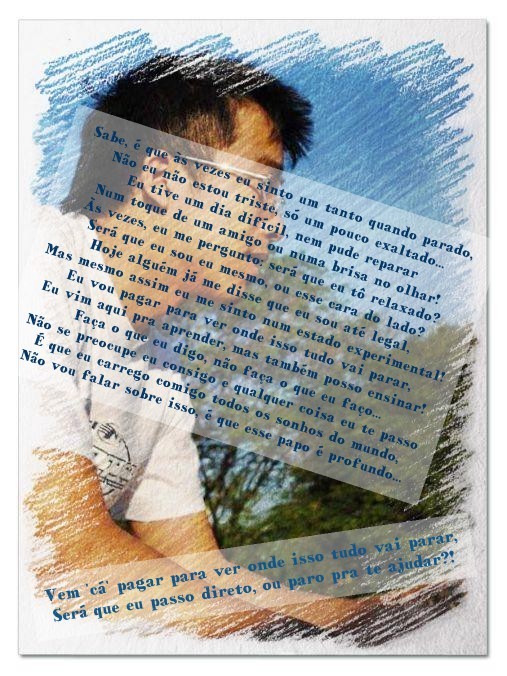 Sabe, é que às vezes eu sinto um tanto quando parado,
Não eu não estou triste, só um pouco exaltado...
Eu tive um dia difícil, nem pude reparar
Num toque de um amigo ou numa brisa no olhar!
Às vezes, eu me pergunto será que eu tô relaxado?
Será que eu sou eu mesmo, ou esse cara do lado?
Hoje alguém já me disse que eu sou até legal.
Mas mesmo assim eu me sinto num estado experimental!
Eu vou pagar para ver onde isso tudo vai parar,
Eu vim aqui pra aprender, mas também posso ensinar!
Faça o que eu digo, não faça o que eu faço...
Não se preocupe eu consigo e qualquer coisa eu te passo
É que eu carrego comigo todos os sonhos do mundo,
Não vou falar sobre isso, é que esse papo é profundo...
Vem 'cá' pagar para ver onde isso tudo vai parar,
Será que eu passo direto, ou paro pra te ajudar?!